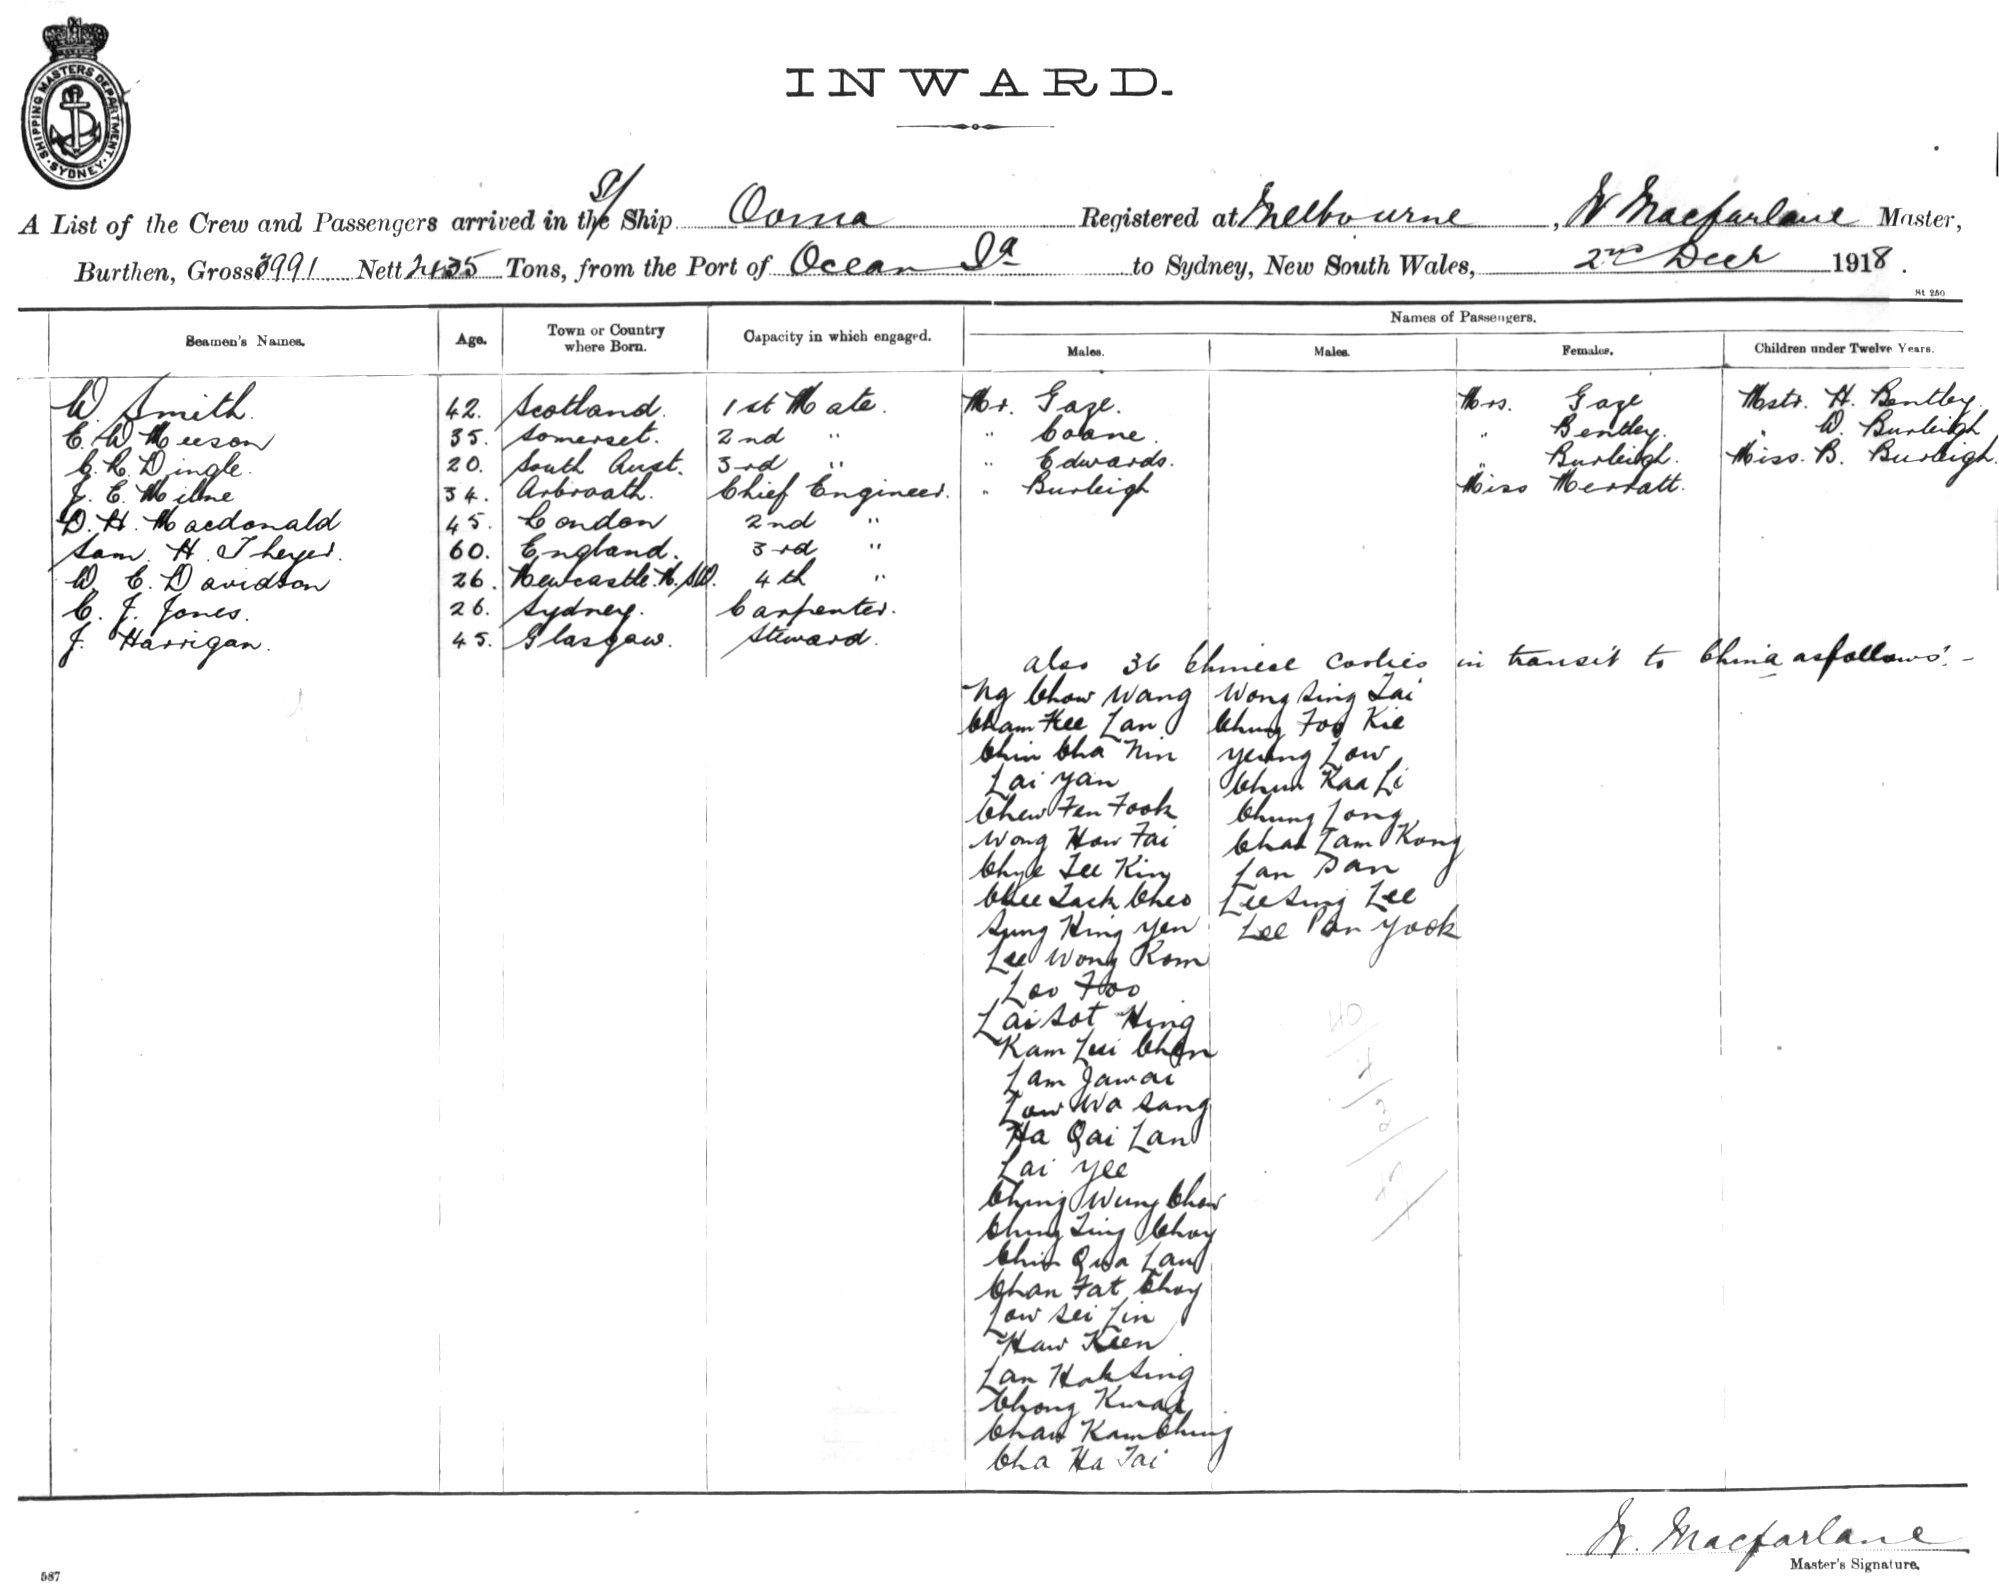 SHIPPING MASTERS DEPARTMENT SYDNEY
INWARD.
A List of the Crew and Passengers arrived in the S/ Ship Ooma Registered at Melbourne, W Macfarlane Master,
Burthen, Gross 3991 Nett 2435 Tons, from the Port of Ocean Id to Sydney, New South Wales, 2nd Decr 1918.
St 250
Names of Passengers.
Seamen's Names. Age. Town or Country where Born. Capacity in which engaged. Males. Males. Females. Children under Twelve Years.
W. Smith. 42. Scotland. 1st Mate. Mr. Gaze. Mrs. Gaze Mstr. H. Bentley.
E. W Meeson 35. Somerset. 2nd " " Coane. " Bentley. " W. Burleigh
C. R. Dingle. 20. South Aust. 3rd " " Edwards. " Burleigh. Miss. B. Burleigh.
J. E. Milne 34. Arbroath. Chief Engineer. " Burleigh Miss Merratt.
D. H. Macdonald 45. London 2nd "
Sam. H. Theyer. 60. England. 3rd "
W. E. Davidson 26. Newcastle. N.S.W. 4th "
C. J. Jones. 26. Sydney. Carpenter.
J. Harrigan. 45. Glasgow. Steward.
also 36 Chinese coolies in transit to China as follows:-
Ng Chow Wang Wong Sing Tai
Cham Hee Lan Chung Foo Kie
Chin Cha Nin Yeung Low
Lai Yan Chun Kaa Li
Chew Fen Fook Chung Long
Wong How Fai Chan Lam Kong
Chye Lee King Lan San
Chee Tack Cheo Lee Sung Lee
Sung Hing Yen Lee Pan Yook
Lee Wong Kom
Loo Foo
Lai Sot Hing
Kam Lui Chan
Lam Jawai
Low Wa Sang
Ha Qai Lan
Lai Yee
Ching Wung Chow
Chung Ting Choy
Chin Qua Lan
Chan Fat Choy
Low Sei Lin
Haw Keen
Lan Hok Sing
Chong Kwai
Chan Kam Ching
Cha Ha Tai
W. Macfarlane
Master's Signature.
587